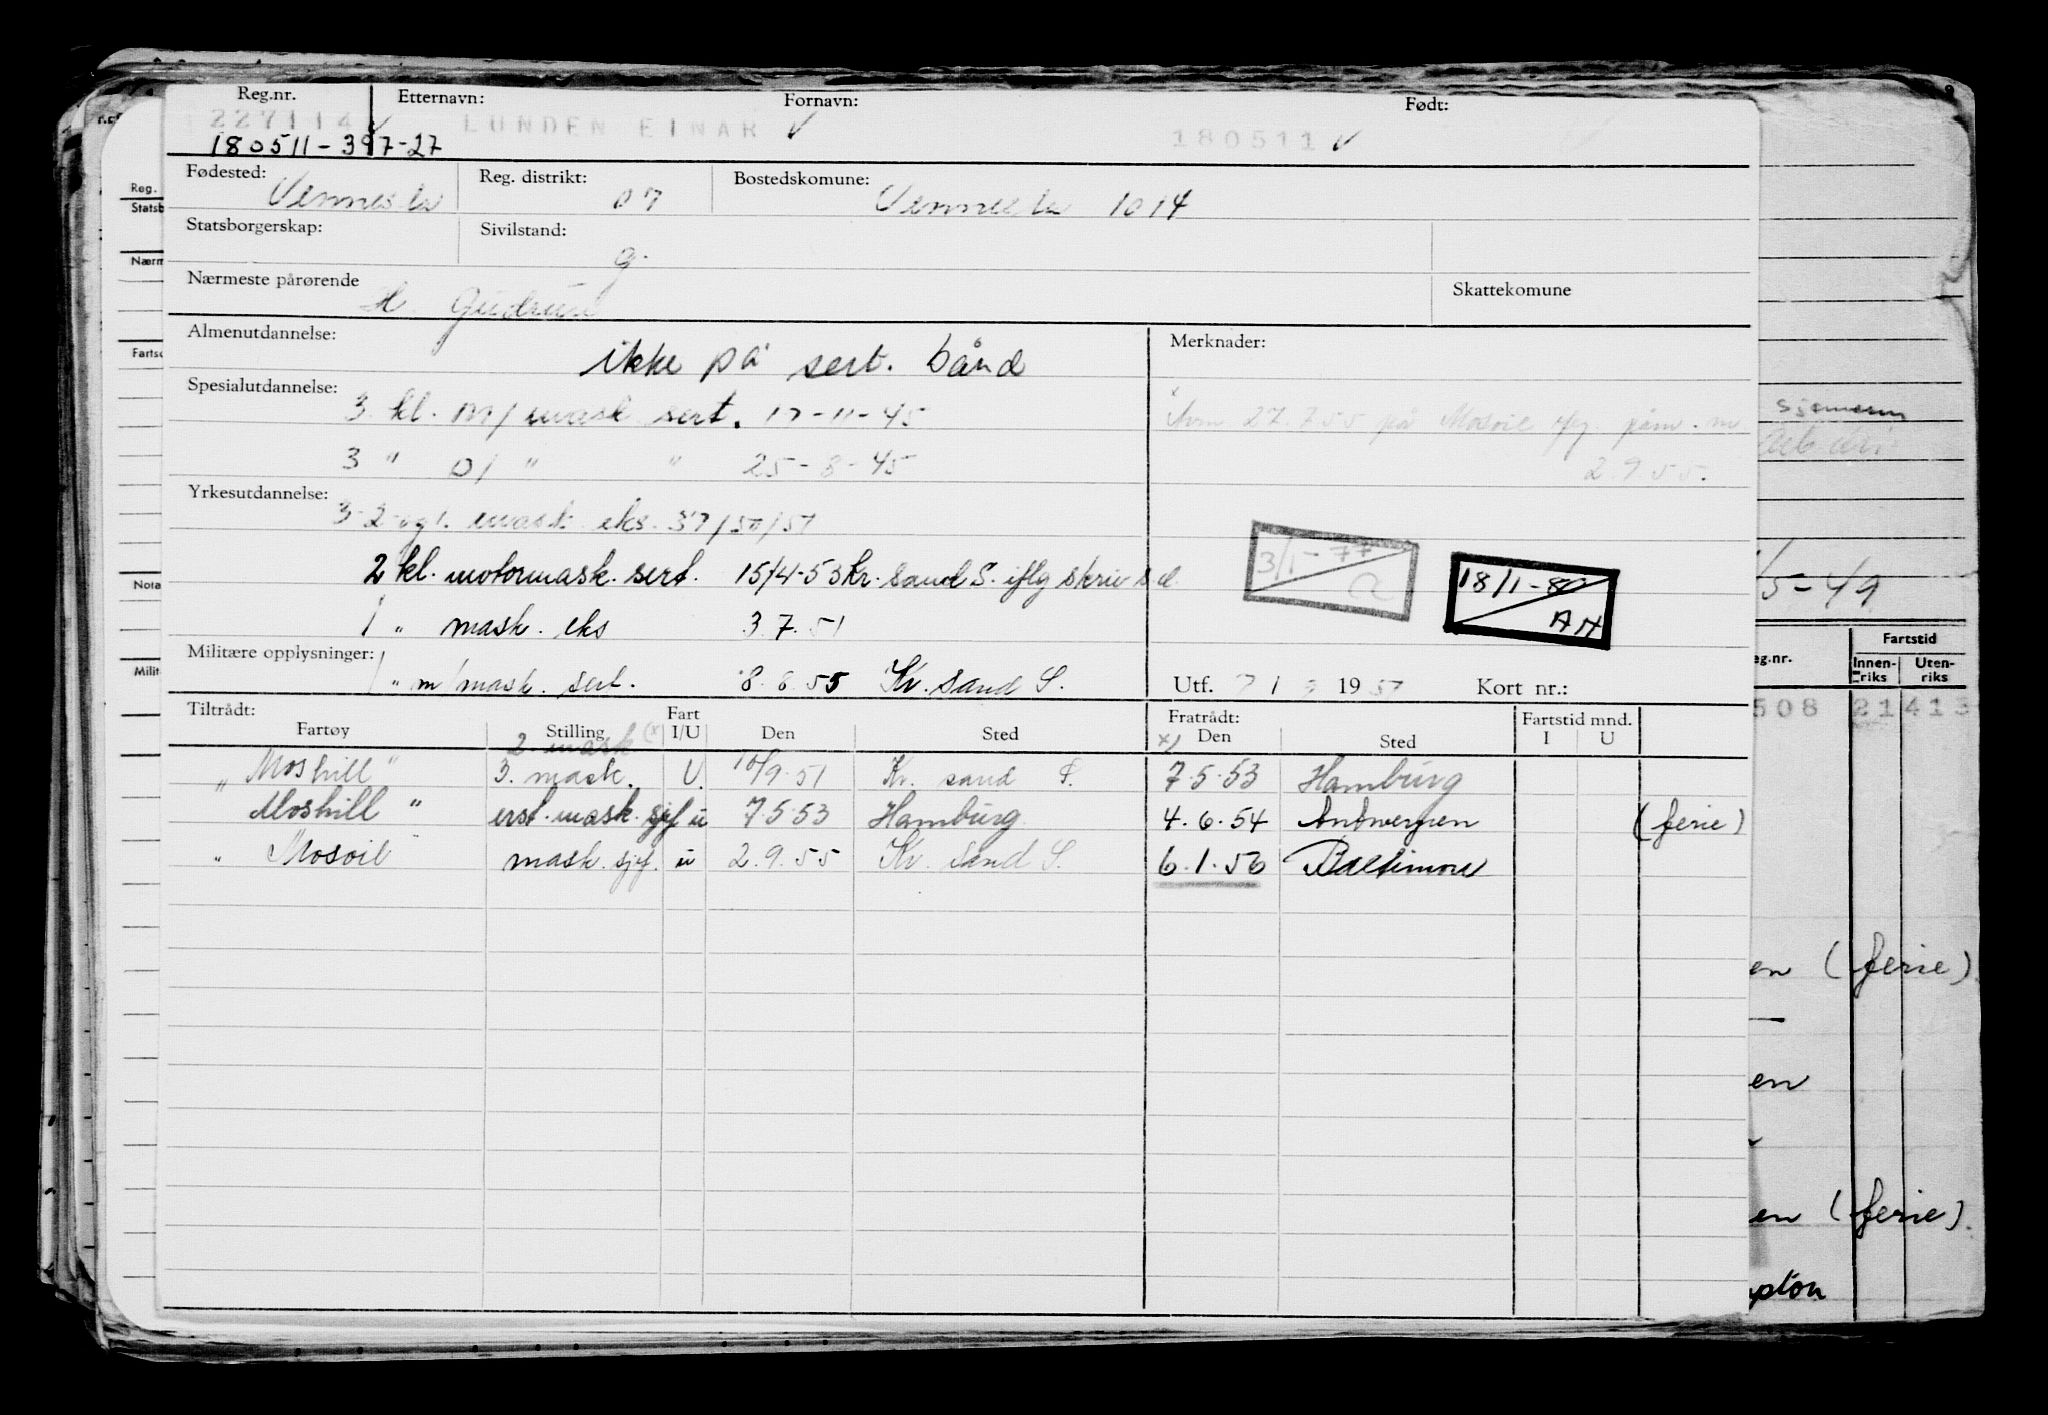 Reg.nr. Etternavn: Fornavn: Født:
227114 LUNDEN EINAR 180511
180511-397-27
Fødested: Vennesla Reg. distrikt: 07 Bostedskomune: Vennesla 1014
Statsborgerskap: Sivilstand: g.
Nærmeste pårørende H. Gudrun Skattekomune
Almenutdannelse: ikke på sert. bånd Merknader:
Spesialutdannelse: 3 kl. m/mask sert. 17-11-45
Avm 27.7.55 på Mosoil påm. m 2.9.55.
3 " D/ " " 25-8-45
Yrkesutdannelse: 3-2-og 1. mask. eks. 37/50/51
2 kl. motormask. sert. 15/4-53 Kr. sand S. iflg skriv s.d.
1 " mask. eks 3.7.51
3/1-77
18/1-80 AH
Militære opplysninger: 1 " m/mask. sert. 8.8.55 Kr. sand S.
Utf. 19 51 Kort nr.:
Tiltrådt: Fratrådt: Fartstid mnd.
Fartøy Stilling Fart I/U Den Sted Den Sted I U
2. mask (x x)
" Moshill " 3. mask. U. 10/9.51 Kr. sand S. 7.5.53 Hamburg
Moshill " erst. mask. sjef u 7.5.53 Hamburg 4.6.54 Antwerpen (ferie)
" Mosoil mask. sjef. u 2.9.55 Kr. sand S. 6.1.56 Baltimore
Reg.
Statsb
Nærm
Fartsc
Nota
Milit
sjømenn
/5-49
eg.nr. Fartstid
Innenriks Utenriks
508 21 413
en (ferie)
en
en (ferie)
pton